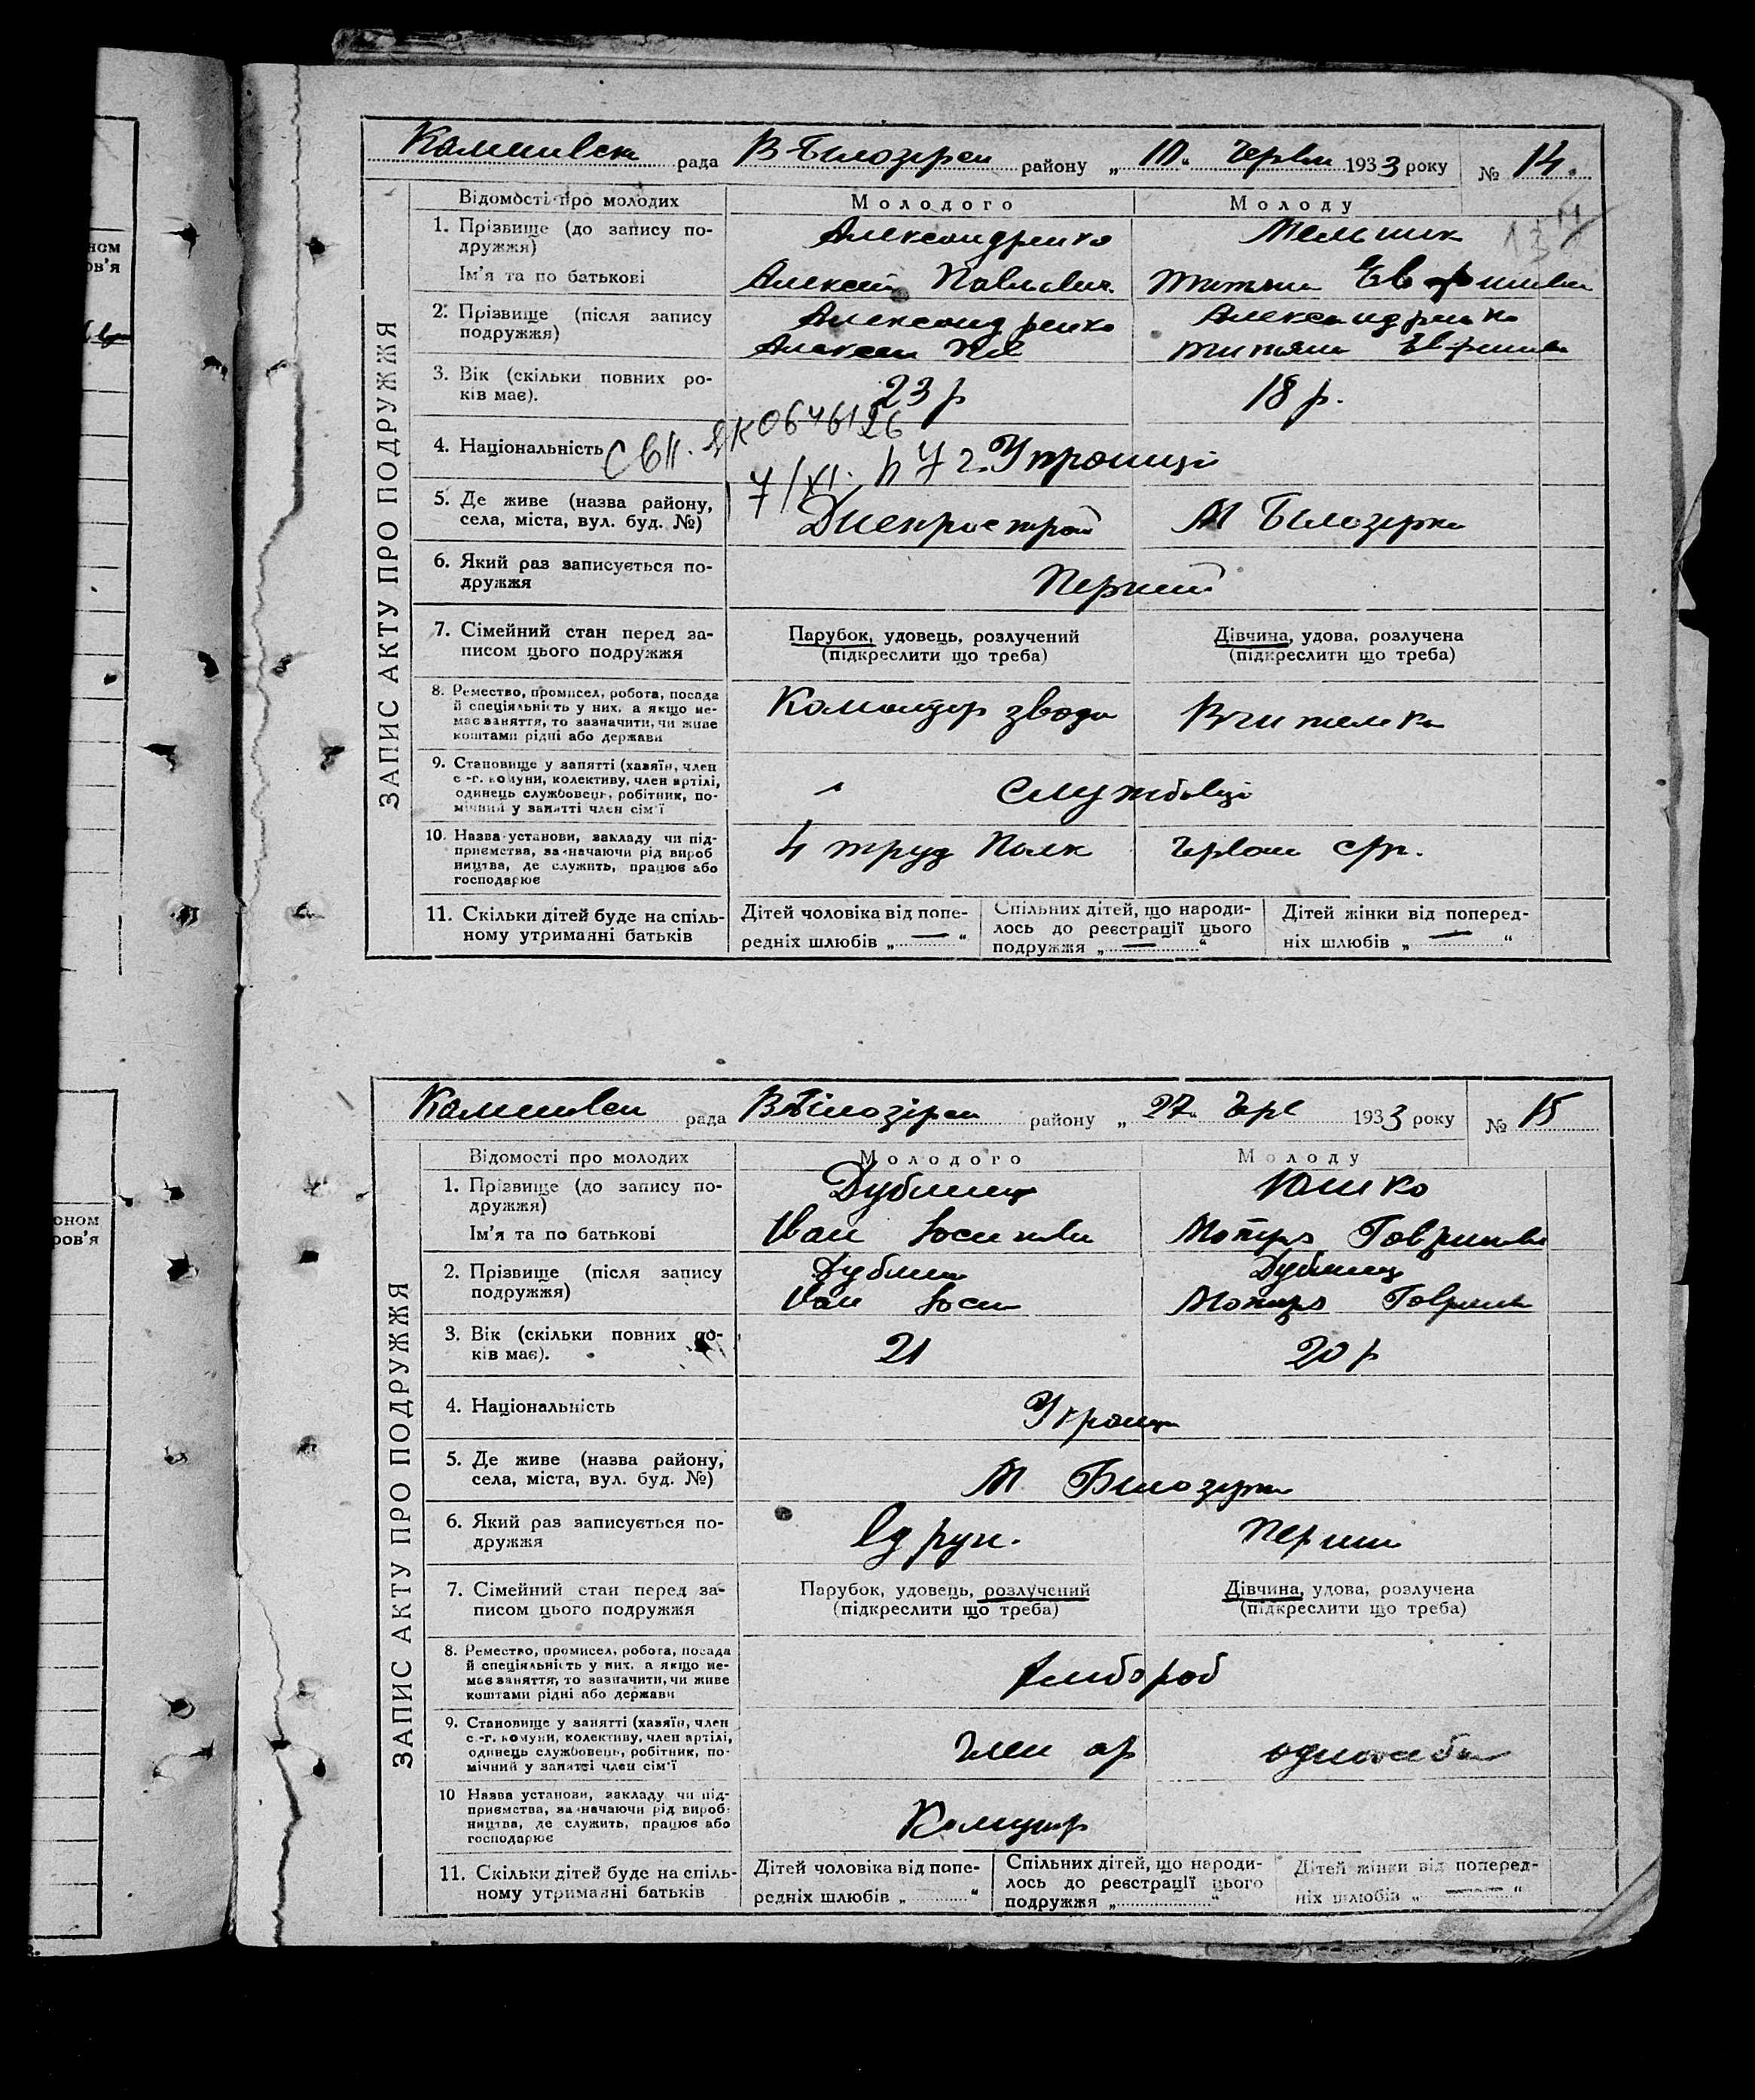 рада В Білозірсн району „ 10 “ Червн 1933 року № 14.
Відомості про молодих Молодого Молоду
1. Прізвище (до запису по- Александренко Мельник
дружжя)
Ім'я та по батькові Алексей Павлович
2. Прізвище (після запису Александренко Александренко
подружжя) Алексей
3. Вік (скільки повних ро- 23 р 18 р.
ків має).
4. Національність
5. Де живе (назва району, Днепрострой М Білозірка
села, міста, вул. буд. №)
6. Який раз записується по- Перший
дружжя
7. Сімейний стан перед за- Парубок, удовець, розлучений Дівчина, удова, розлучена
писом цього подружжя (підкреслити що треба) (підкреслити що треба)
8. Ремество, промисел, робота, посада Командир звода Вчителька
й спеціяльність у них, а якщо не-
має заняття, то зазначити, чи живе
коштами рідні або держави
9. Становище у занятті (хазяїн, член Службовці
с.-г. комуни, колективу, член артілі,
одинець службовець, робітник, по-
мічний у занятті член сім'ї
10. Назва установи, закладу чи під- 4 труд Полк
приємства, зазначаючи рід вироб
ництва, де служить, працює або
господарює
11. Скільки дітей буде на спіль- Дітей чоловіка від попе- Спільних дітей, що народи- Дітей жінки від поперед-
ному утриманні батьків редніх шлюбів „ — “ лось до реєстрації цього ніх шлюбів „ — “
подружжя „ — “
ЗАПИС АКТУ ПРО ПОДРУЖЖЯ
рада В Білозірсн району „ 27 “ Чер 1933 року № 15
Відомості про молодих Молодого Молоду
1. Прізвище (до запису по- Дублянец Юшко
дружжя)
Ім'я та по батькові Іван Мотря
2. Прізвище (після запису
подружжя) Іван Йоси Мотря
3. Вік (скільки повних ро- 21 20 р
ків має).
4. Національність Українц
5. Де живе (назва району, М Білозірка
села, міста, вул. буд. №)
6. Який раз записується по- Перши
дружжя
7. Сімейний стан перед за- Парубок, удовець, розлучений Дівчина, удова, розлучена
писом цього подружжя (підкреслити що треба) (підкреслити що треба)
8. Ремество, промисел, робота, посада Хлібороб
й спеціяльність у них, а якщо не-
має заняття, то зазначити, чи живе
коштами рідні або держави
9. Становище у занятті (хазяїн, член член ар односібн
с.-г. комуни, колективу, член артілі,
одинець службовець, робітник, по-
мічний у занятті член сім'ї
10 Назва установи, закладу чи під-
приємства, зазначаючи рід вироб-
ництва, де служить, працює або
господарює
11. Скільки дітей буде на спіль- Дітей чоловіка від попе- Спільних дітей, що народи- Дітей жінки від поперед-
ному утриманні батьків редніх шлюбів „ “ лось до реєстрації цього ніх шлюбів „ — “
подружжя „ “
ЗАПИС АКТУ ПРО ПОДРУЖЖЯ